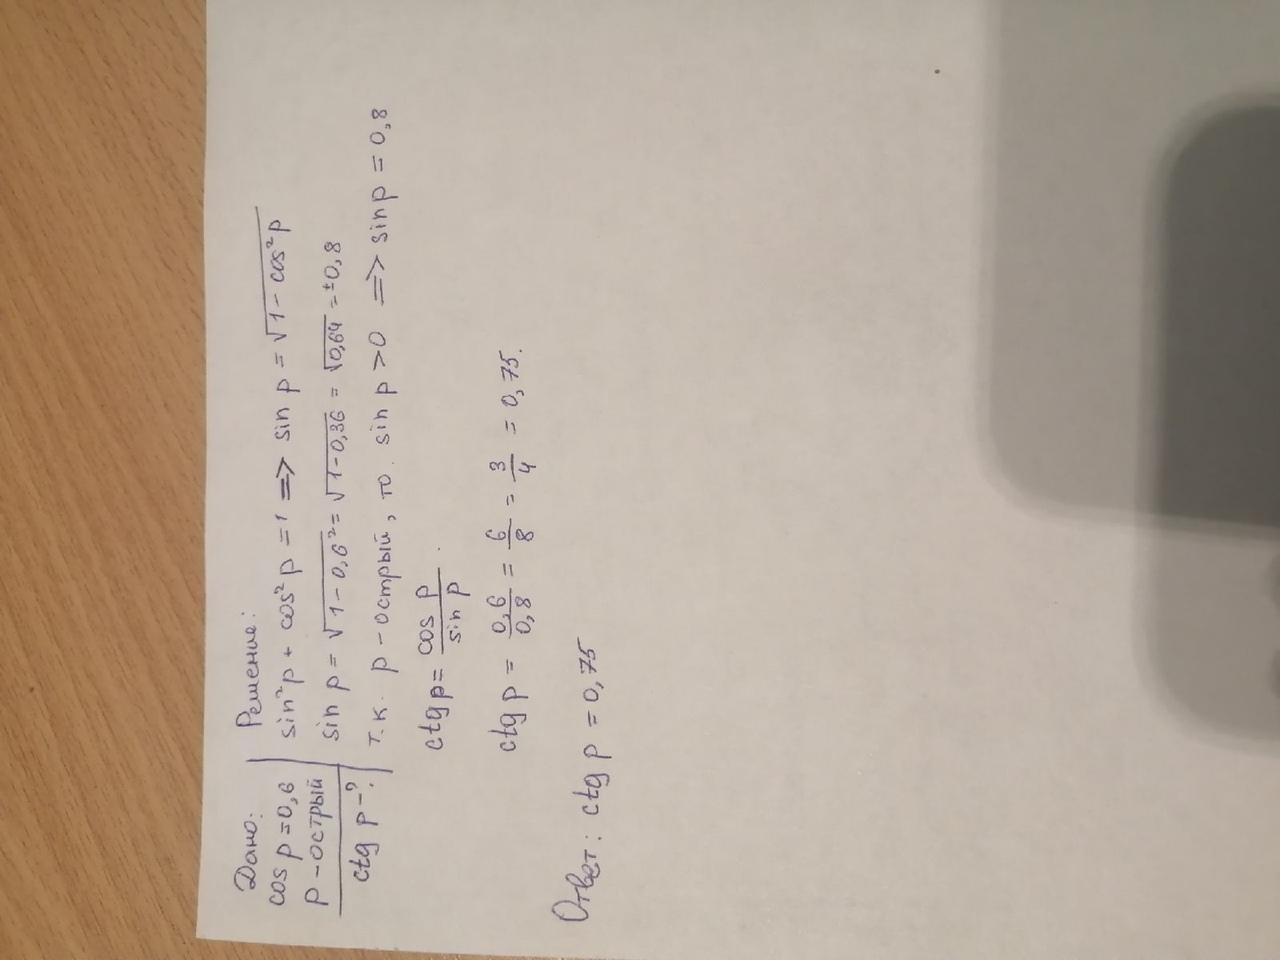 Дано:
cos p = 0,6
p - острый
ctg p - ?
Решение:
sin²p + cos²p = 1 => sin p = √1 - cos²p
sin p = √1 - 0,6² = √1 - 0,36 = √0,64 = ±0,8
т.к. p - острый, то sin p > 0 => sin p = 0,8
ctg p = cos p / sin p .
ctg p = 0,6 / 0,8 = 6/8 = 3/4 = 0,75.
Ответ: ctg p = 0,75